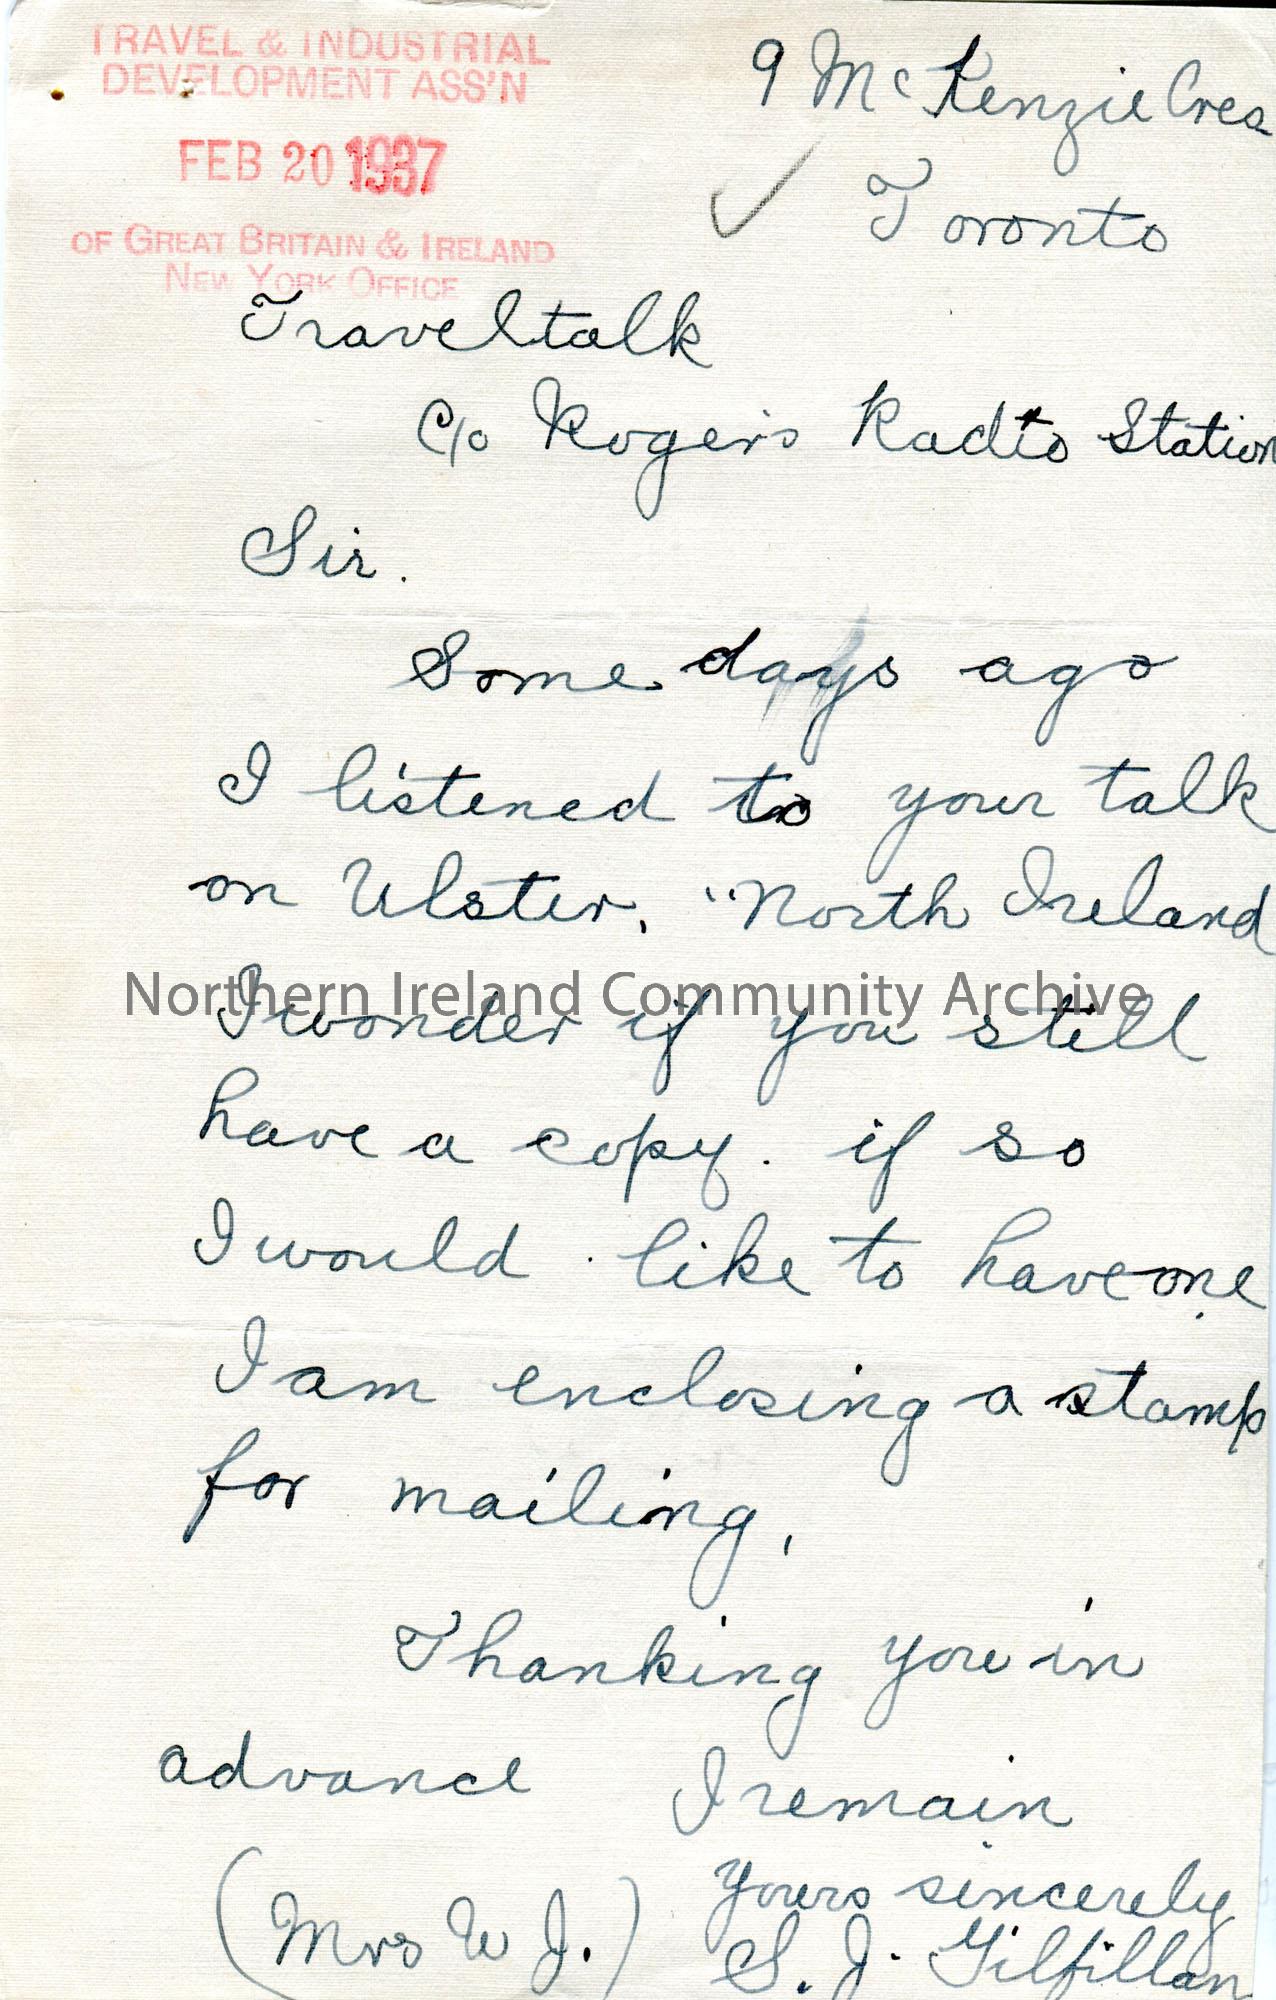 TRAVEL & INDUSTRIAL
DEVELOPMENT ASS'N
FEB 20 1937
OF GREAT BRITAIN & IRELAND
NEW YORK OFFICE
9 McKenzie Cres
Toronto
Traveltalk
C/o Rogers Radio Station
Sir.
Some days ago
I listened to your talk
on Ulster, "North Ireland
Northern Ireland Community Archive
I wonder if you still
have a copy. if so
I would like to have one
I am enclosing a stamp
for mailing,
Thanking you in
advance I remain
yours sincerely
(Mrs W J.) S. J. Gilfillan